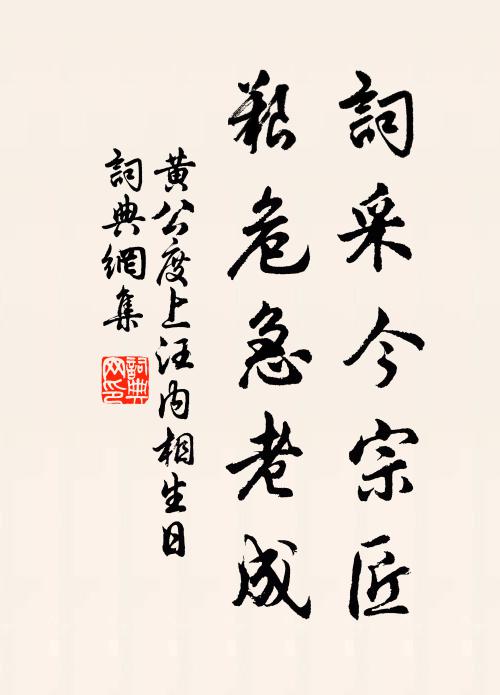 詞采今宗匠
艱危急老成
黃公度上汪內相生日
詞典網集
詞典網印